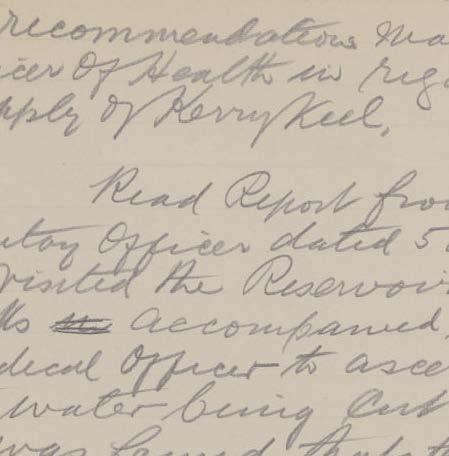 recommendations Ma
icer Of Health in reg
pply of Kerrykeel,
Read Report fro
itary Officer dated 5
visited the Reservoir
ks accompanied
dical Officer to asce
water being Cut
was found that th